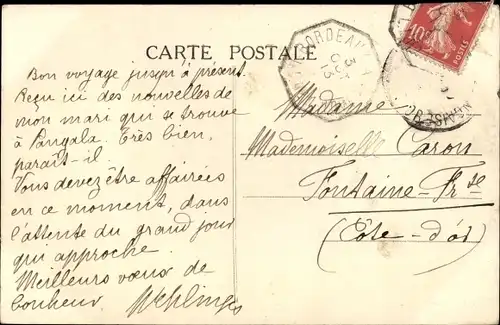 CARTE POSTALE
BORDEAUX
10c
POSTES
Bon voyage jusqu'à présent.
Reçu ici des nouvelles de
mon mari qui se trouve
à Pangala. Très bien,
paraît-il.
Vous devez être affairées
en ce moment, dans
l'attente du grand jour
qui approche.
Meilleurs vœux de
bonheur
Madame
Mademoiselle Caron
Fontaine-Frse
(Côte-d'or)